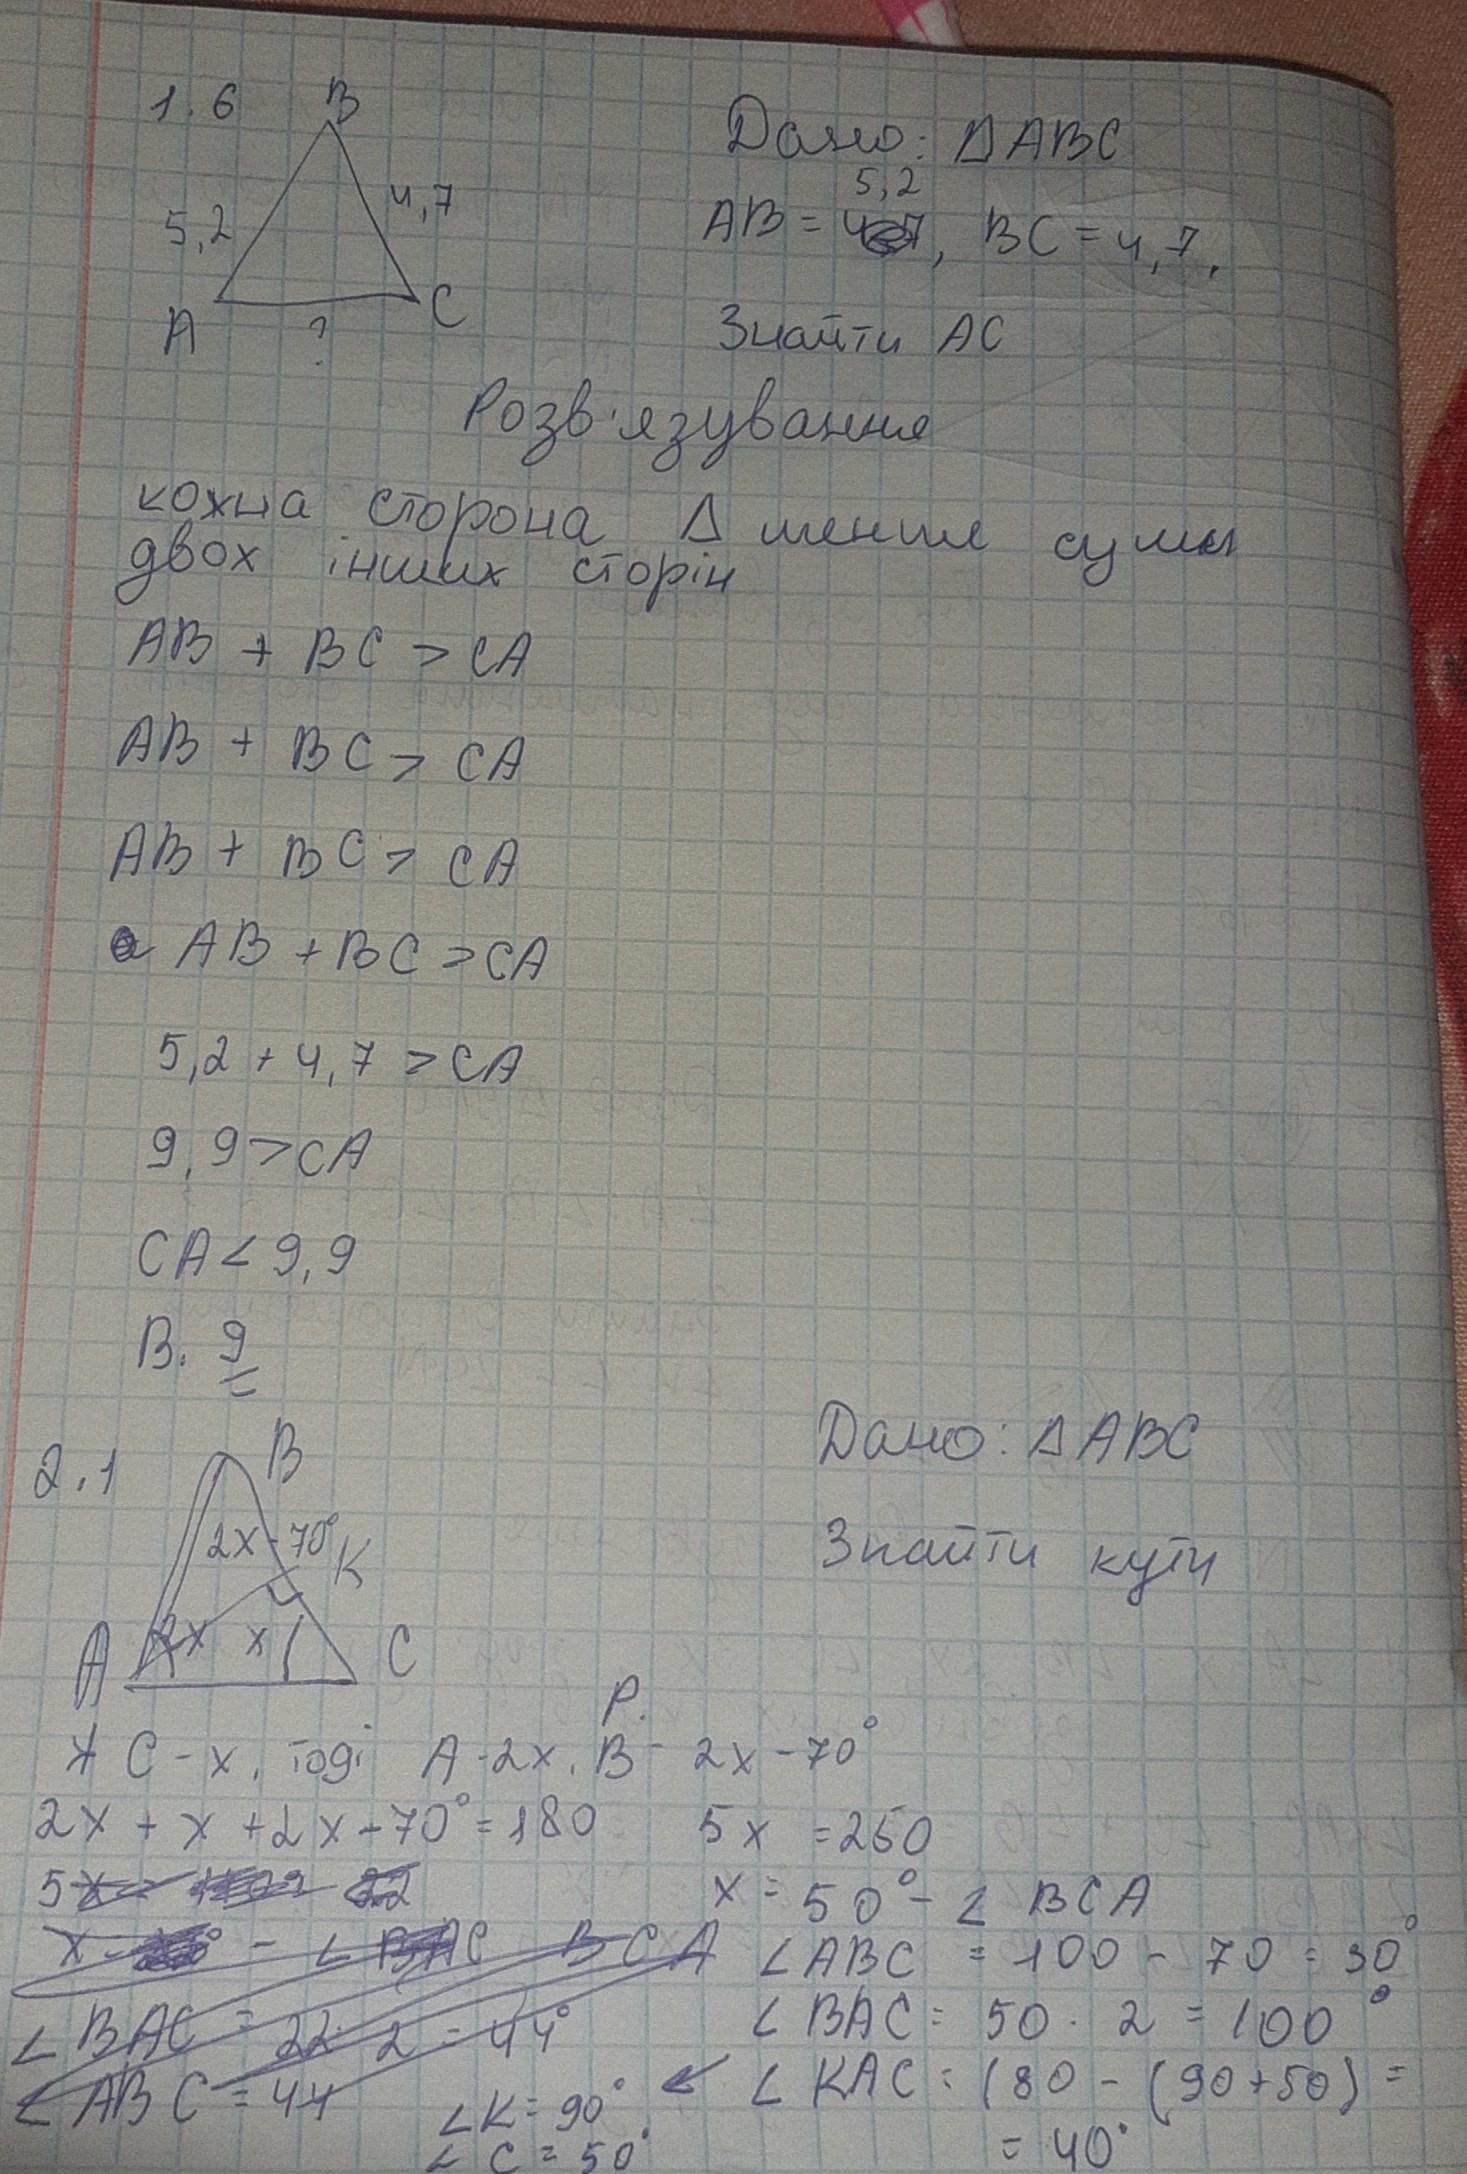 1.6
B
5,2
4,7
A
?
C
Дано: ΔABC
5,2
AB = , BC = 4,7,
Знайти AC
Розв'язування
кожна сторона Δ менше суми
двох інших сторін
AB + BC > CA
AB + BC > CA
AB + BC > CA
AB + BC > CA
5,2 + 4,7 > CA
9,9 > CA
CA < 9,9
В. 9
2.1
B
2x-70°
K
A
2x
x
C
Дано: ΔABC
Знайти кути
Р.
C - x, тоді A - 2x, B - 2x - 70°
2x + x + 2x - 70° = 180
5x = 250
x = 50° - ∠ BCA
∠ ABC = 100 - 70 = 30°
∠ BAC = 50 · 2 = 100°
∠ BAC = 22 · 2 = 44°
∠ ABC = 44
∠ KAC = 180 - (90+50) =
= 40°
∠K = 90°
∠ C = 50°